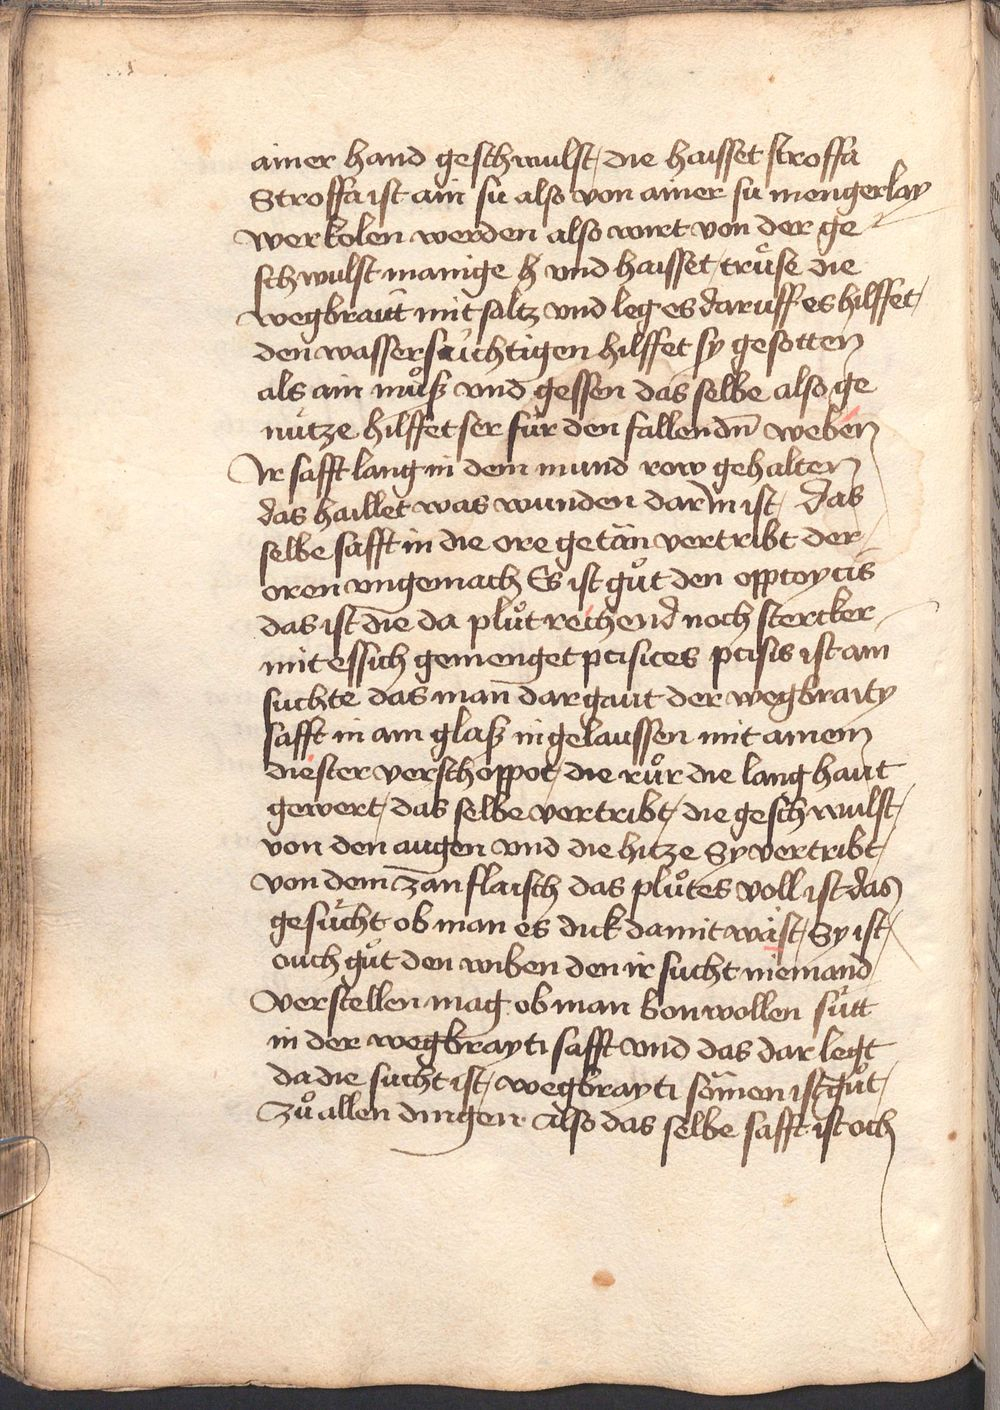 ainer hand geschwulst / die haisset stroffa
Stroffa ist ain su also von ainer su mengerlay
werkolen werden also wirt von der ge
schwulst manige h vnd haisset / trüse die
wegbrait mit saltz vnd leg es daruff es hilffet /
den wassersüchtigen hilffet sy gesotten
als ain můß vnd gessen das selbe also ge
nütze hilffet ser für den fallenden weben
Ir safft lang in dem mund row gehalten
das haillet was wunden darin ist / das
selbe safft in die ore getän vertribt der
oren vngemach Es ist gůt den opptoycis
das ist die da plůt rechend noch stercker
mit essich gemenget ptisices ptisis ist ain
suchte das man dar gaut der wegbraity
safft in ain glaß ingelaussen mit ainem
diester verschoppot / die růr die lang haut
gewert / das selbe vertribt / die geschwulst /
von den augen vnd die hitze Sy vertribt /
von dem zanflaisch das plůtes voll ist das
gesücht ob man es dick damit wäst / Sy ist /
ouch gůt den wiben den ir sucht niemand
verstellen mag ob man bonwollen sütt
in der wegbrayti safft vnd das dar legt
da die sucht ist / wegbrayti sämen ist gůt /
Zů allen dingen. Also das selbe safft ist och